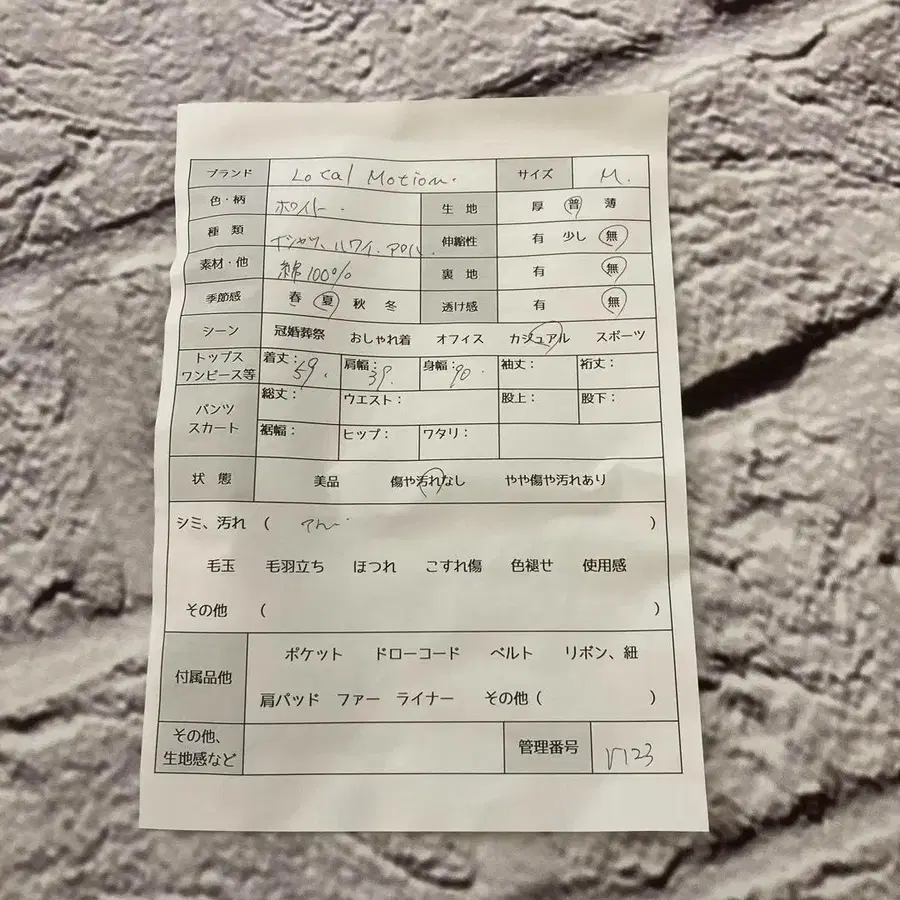 ブランド Local Motion. サイズ M.
色・柄 ホワイト. 生地 厚 普 薄
種類 Tシャツ、ハワイ、アロハ. 伸縮性 有 少し 無
素材・他 綿100% 裏地 有 無
季節感 春 夏 秋 冬 透け感 有 無
シーン 冠婚葬祭 おしゃれ着 オフィス カジュアル スポーツ
トップス ワンピース等 着丈：59. 肩幅：39. 身幅：90. 袖丈： 裄丈：
パンツ スカート 総丈： ウエスト： 股上： 股下：
裾幅： ヒップ： ワタリ：
状態 美品 傷や汚れなし やや傷や汚れあり
シミ、汚れ （ ）
毛玉 毛羽立ち ほつれ こすれ傷 色褪せ 使用感
その他 （ ）
付属品他 ポケット ドローコード ベルト リボン、紐
肩パッド ファー ライナー その他（ ）
その他、
生地感など 管理番号 V123